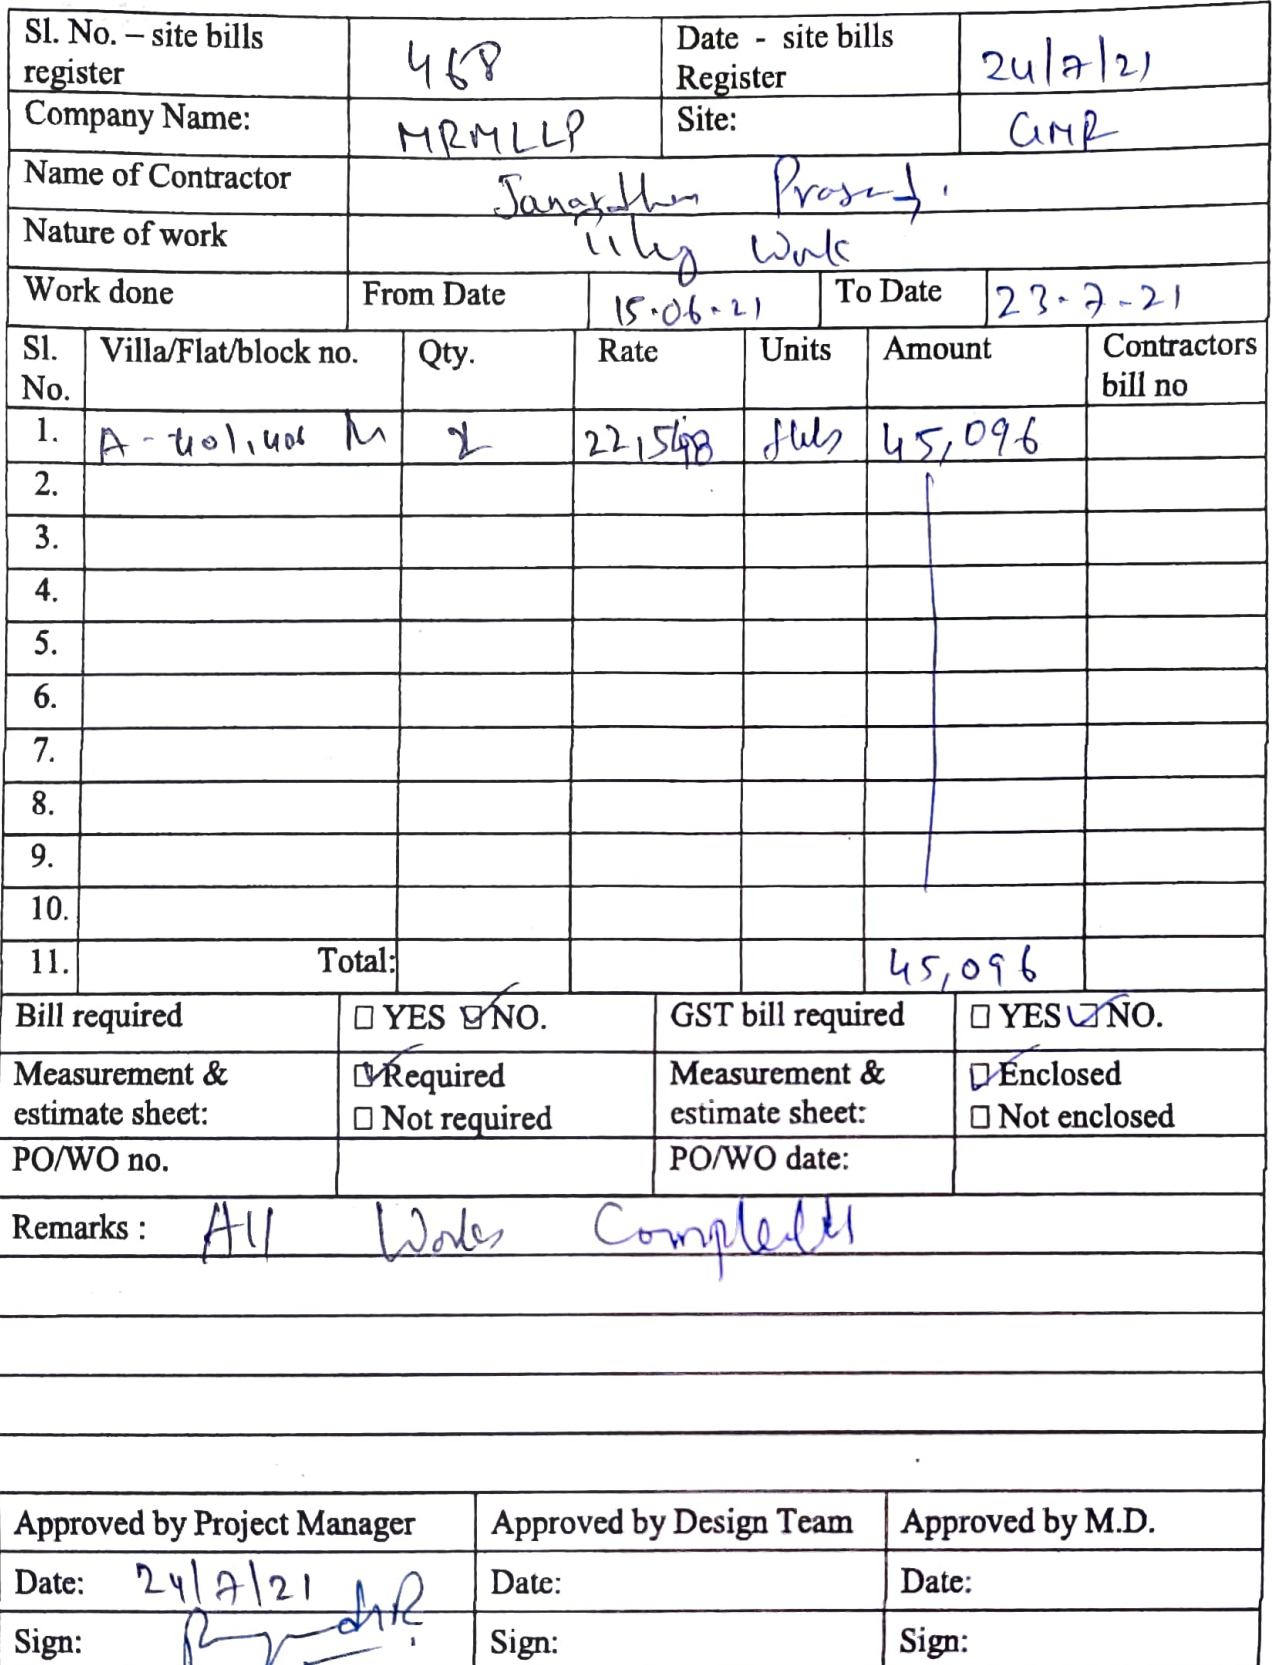 Sl. No. – site bills register 468 Date - site bills Register 24/7/21
Company Name: MRMLLP Site: GMR
Name of Contractor Janardhan Prasad.
Nature of work Tiling Work
Work done From Date 15.06.21 To Date 23.7.21
Sl. No. Villa/Flat/block no. Qty. Rate Units Amount Contractors bill no
1. A - 401,406 2 22,548 45,096
2.
3.
4.
5.
6.
7.
8.
9.
10.
11. Total: 45,096
Bill required ☐ YES ☑ NO. GST bill required ☐ YES ☑ NO.
Measurement & estimate sheet: ☑ Required Measurement & estimate sheet: ☑ Enclosed
☐ Not required ☐ Not enclosed
PO/WO no. PO/WO date:
Remarks : All Works Completed
Approved by Project Manager Approved by Design Team Approved by M.D.
Date: 24/7/21 Date: Date:
Sign: Sign: Sign: